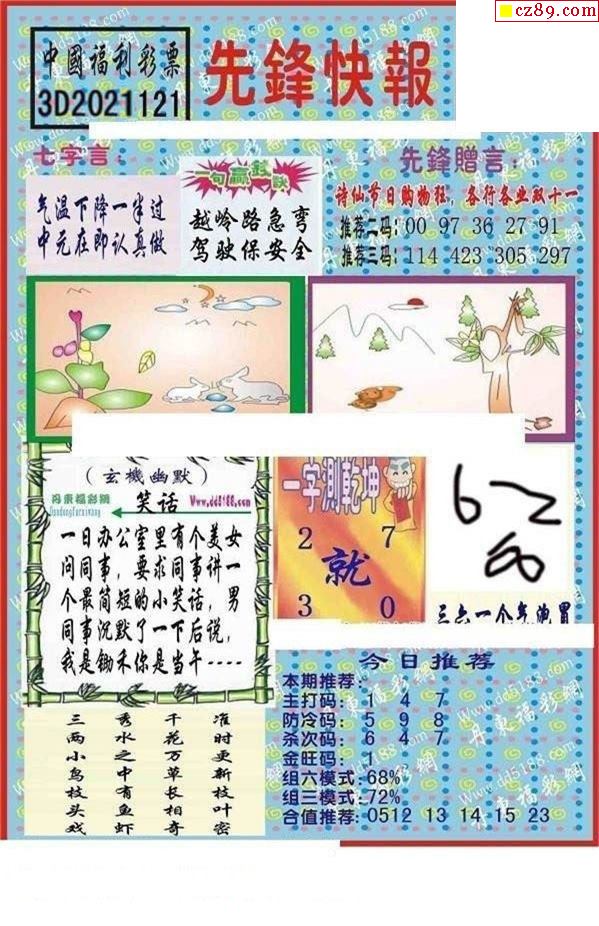 cz89.com
中國福利彩票
3D2021121
先鋒快報
七字言：
气温下降一半过
中元在即认真做
一句赢钱诀
越岭路急弯
驾驶保安全
先鋒贈言：
诗仙节日购物狂，各行各业双十一
推荐二码：00 97 36 27 91
推荐三码：114 423 305 297
（玄機幽默）
丹東福彩網
Dandongfucaiwang
笑话
Www.dd5188.com
一日办公室里有个美女
问同事，要求同事讲一
个最简短的小笑话，男
同事沉默了一下后说，
我是锄禾你是当午----
一字測乾坤
2 7
就
3 0
三六一个气泡冒
三两小鸟枝头戏
秀水之中有鱼虾
千花万草长相奇
准时更新枝叶密
今日推荐
本期推荐：
主打码：1 4 7
防冷码：5 9 8
杀次码：6 4 7
金旺码：1
组六模式：68%
组三模式：72%
合值推荐：0512 13 14 15 23